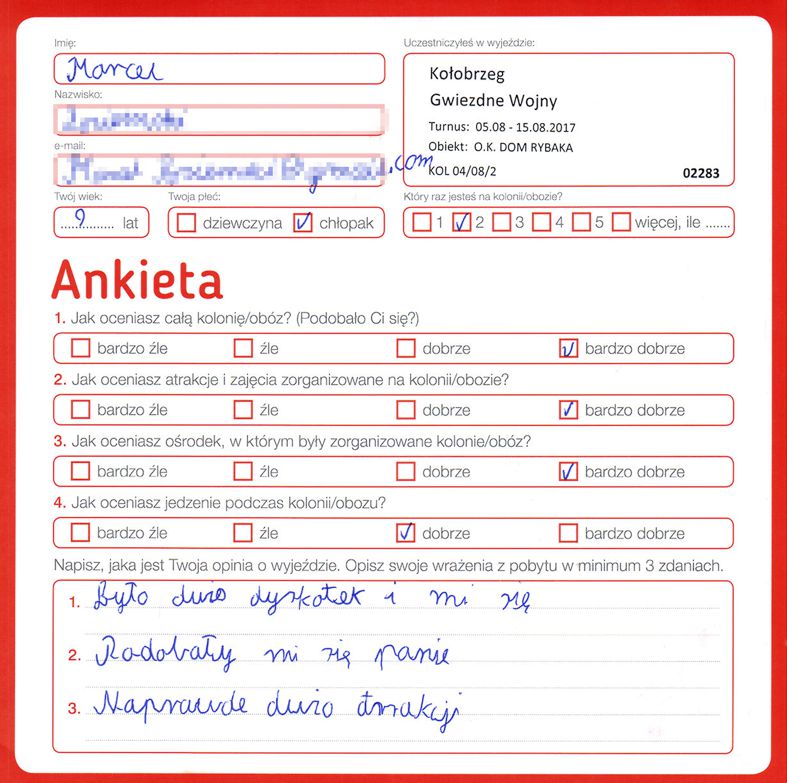 Imię:
Marcel
Nazwisko:
e-mail:
.com
Twój wiek:
9 lat
Twoja płeć:
dziewczyna chłopak
Uczestniczyłeś w wyjeździe:
Kołobrzeg
Gwiezdne Wojny
Turnus: 05.08 - 15.08.2017
Obiekt: O.K. DOM RYBAKA
KOL 04/08/2 02283
Który raz jesteś na kolonii/obozie?
1 2 3 4 5 więcej, ile .......
Ankieta
1. Jak oceniasz całą kolonię/obóz? (Podobało Ci się?)
bardzo źle źle dobrze bardzo dobrze
2. Jak oceniasz atrakcje i zajęcia zorganizowane na kolonii/obozie?
bardzo źle źle dobrze bardzo dobrze
3. Jak oceniasz ośrodek, w którym były zorganizowane kolonie/obóz?
bardzo źle źle dobrze bardzo dobrze
4. Jak oceniasz jedzenie podczas kolonii/obozu?
bardzo źle źle dobrze bardzo dobrze
Napisz, jaka jest Twoja opinia o wyjeździe. Opisz swoje wrażenia z pobytu w minimum 3 zdaniach.
1. Było dużo dyskotek i mi się
2. Podobały mi się panie
3. Naprawde dużo atrakcji